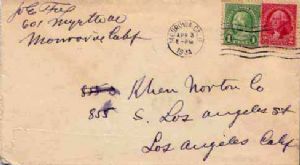 601 Myrtle av
Monrovia Calif
MONROVIA, CAL
APR 3
1 - PM
Khen Norton Co
855 S. Los Angeles St
Los Angeles Calif